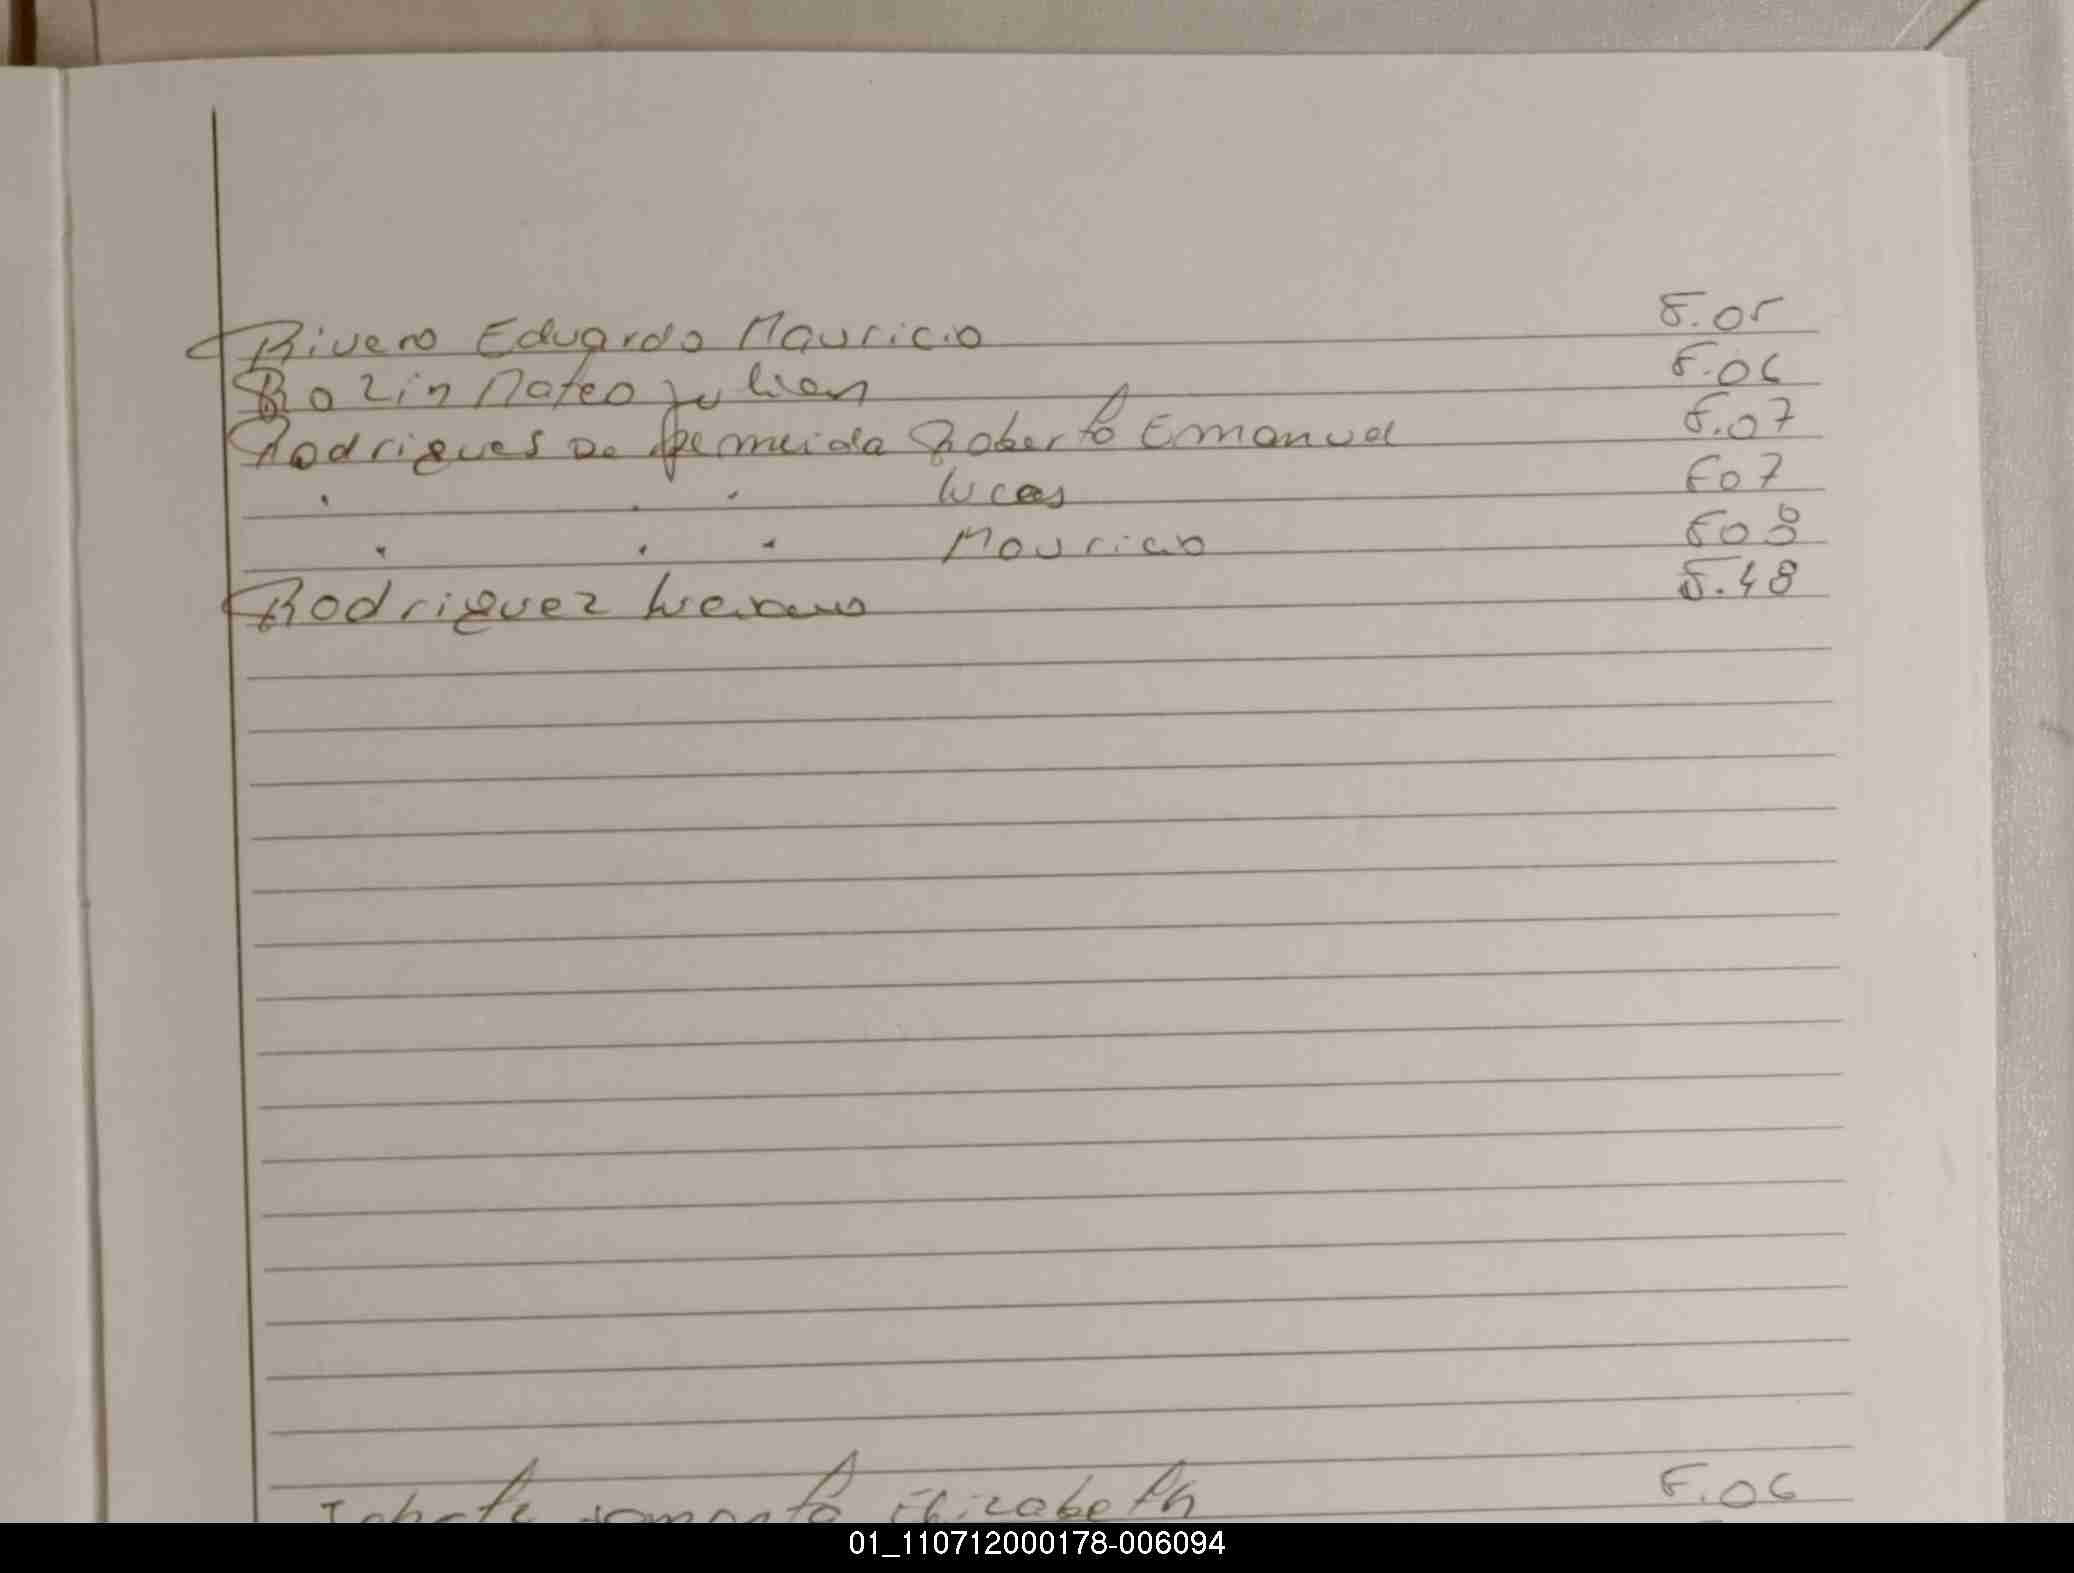 Rivero Eduardo Mauricio F.05
Rozin Mateo Julian F.06
Rodrigues De Roberto Emanuel F.07
" " " Lucas F07
" " " Mauricio F08
Rodriguez F.48
Elizabeth F.06
01_110712000178-006094